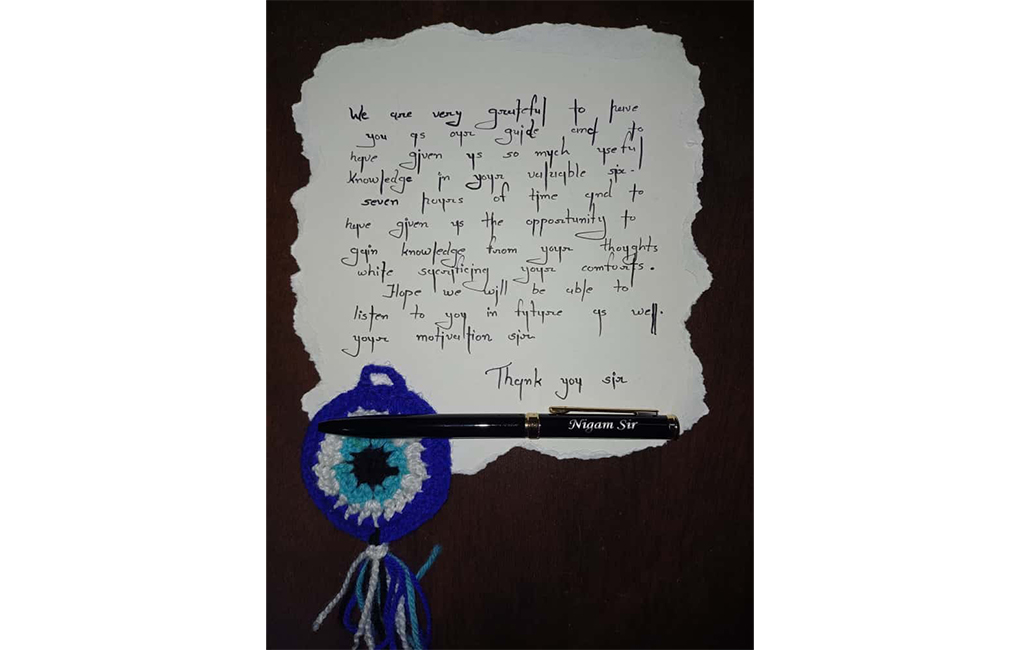 We are very grateful to have
you as our guide and to
have given us so much useful
knowledge in your valuable sir.
seven hours of time and to
have given us the opportunity to
gain knowledge from your thoughts
while sacrificing your comforts.
Hope we will be able to
listen to you in future as well.
your motivation sir
Thank you sir
Nigam Sir